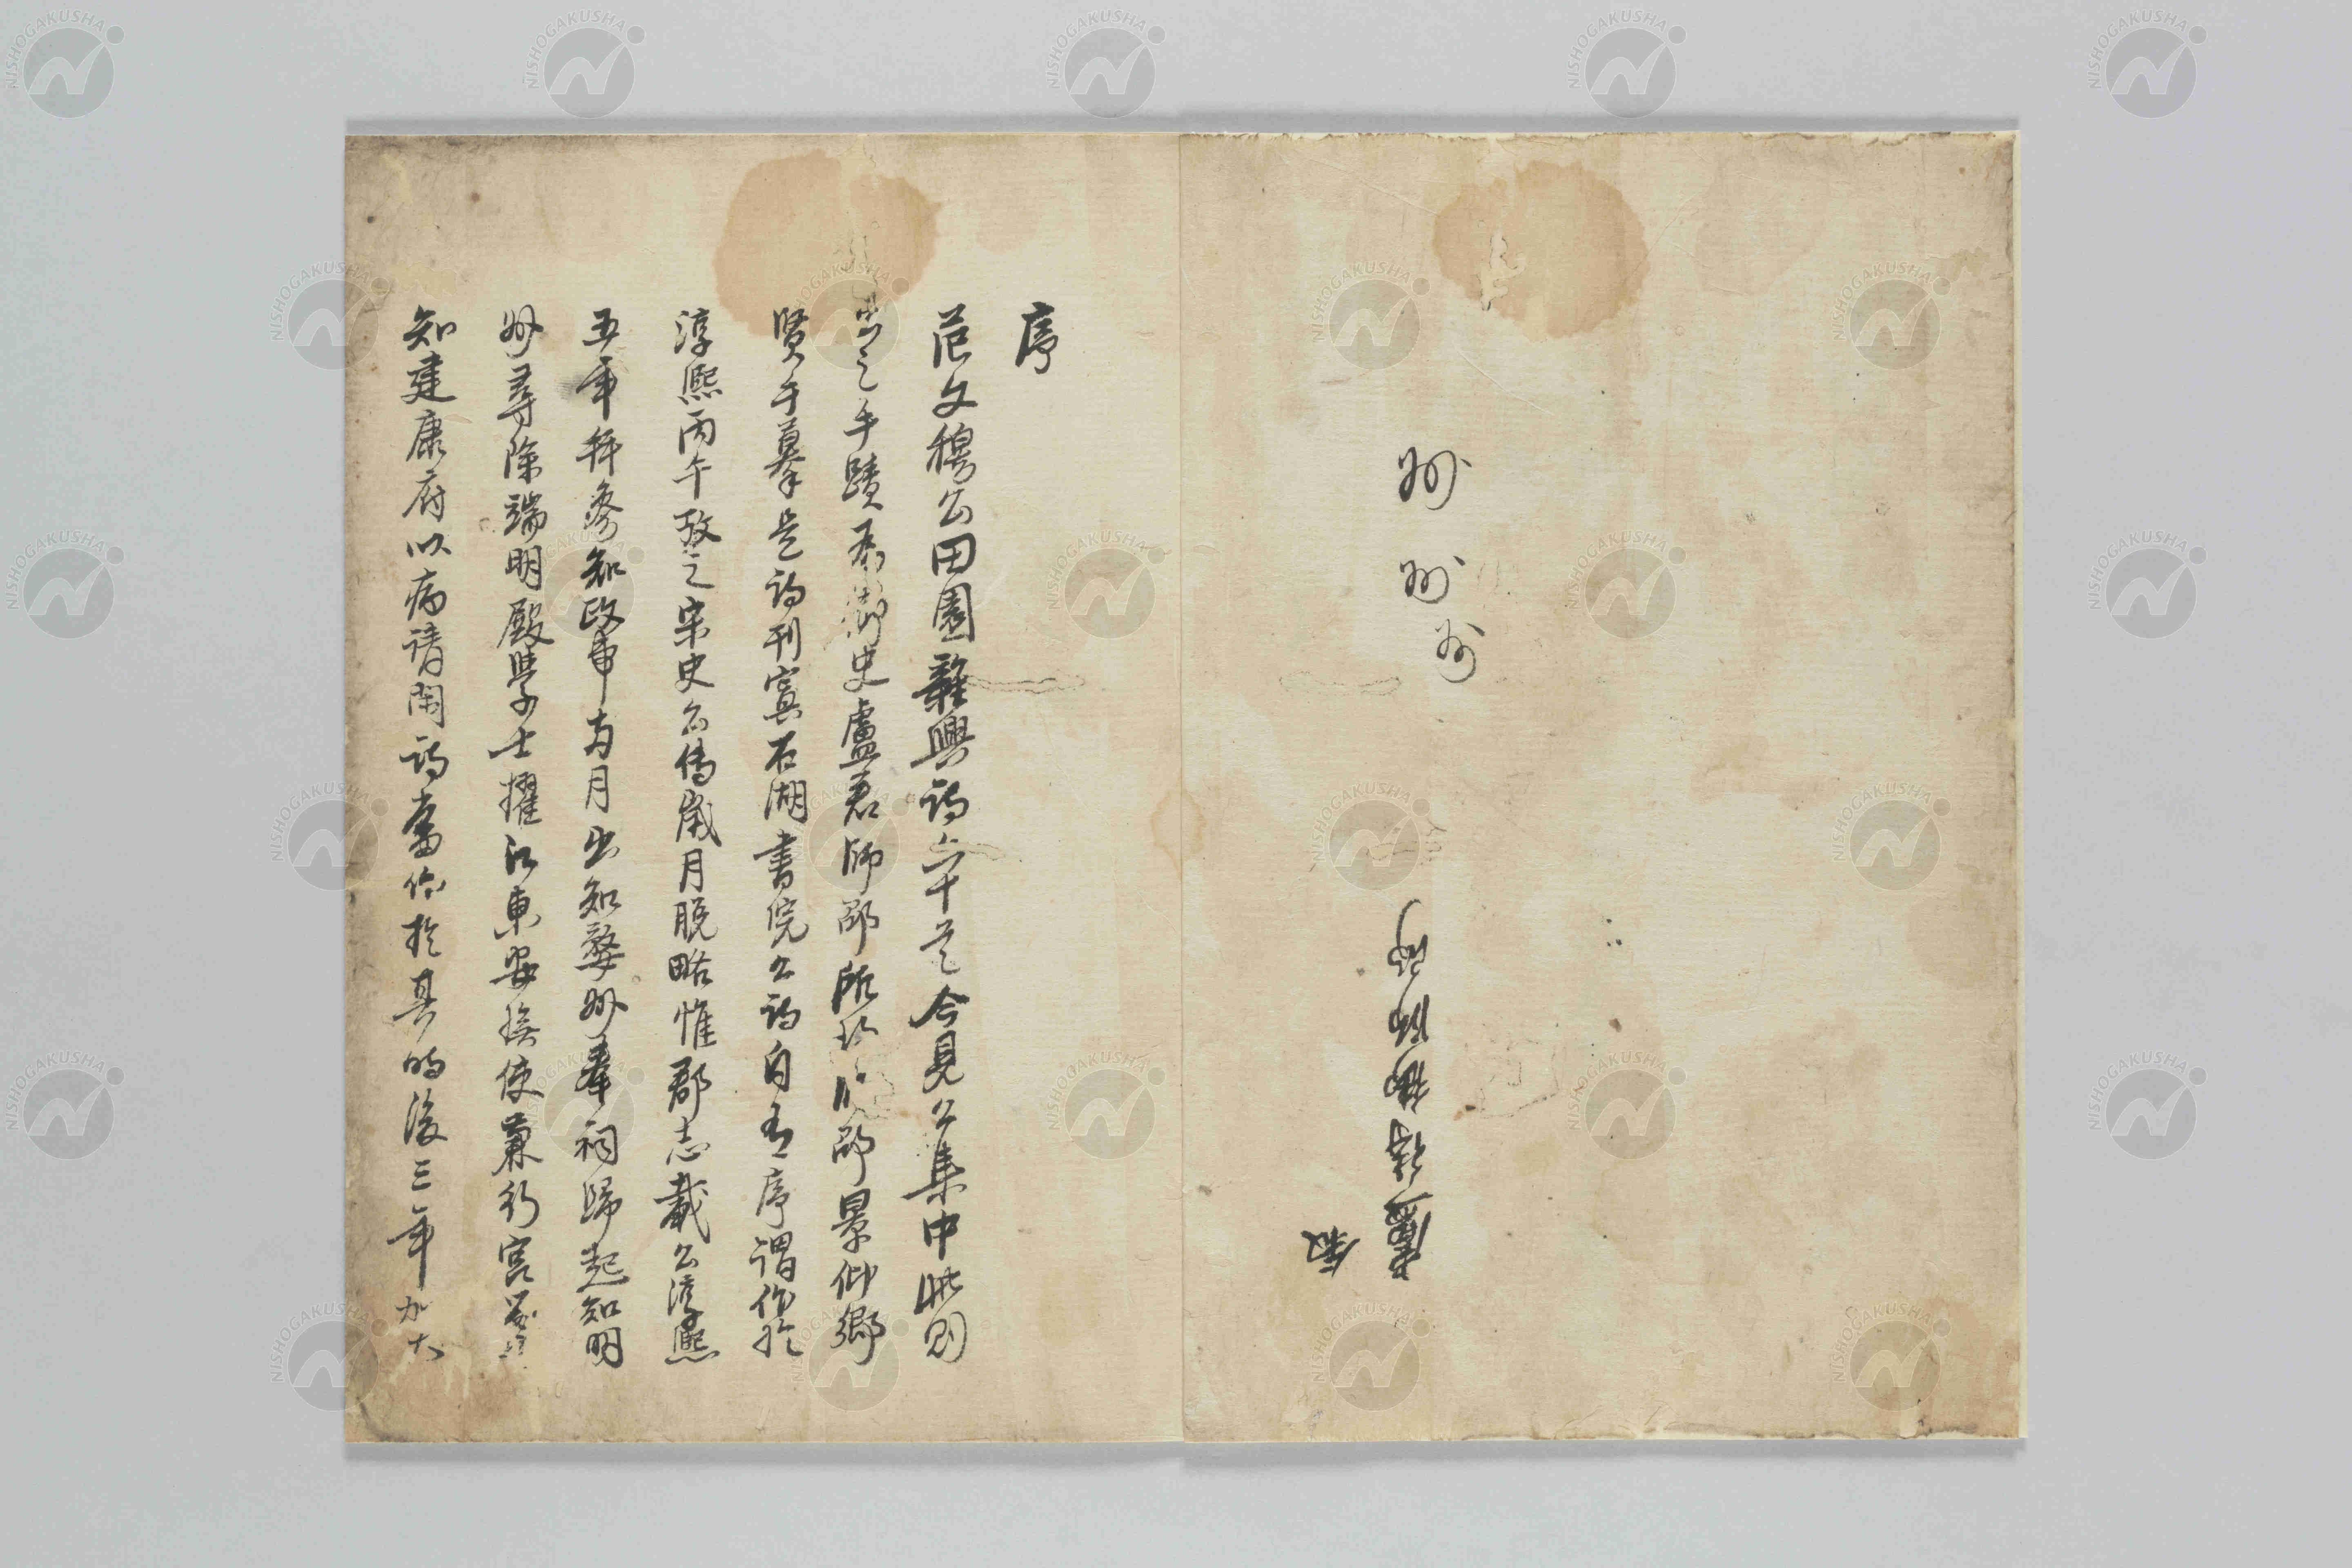 州
州
州
御師邵
序
范文穆公田園雜興詩六十首今見公集中此則
之手蹟御史盧君師邵所珍師邵景仰鄉
賢手摹是詩刊寘石湖書院公詩自有序謂作於
淳熙丙午攷之宋史公傳歲月脫略惟郡志載公淳熙
五年拜參知政事兩月出知婺州奉祠歸起知明
州尋除端明殿學士擢江東安撫使兼行宮
知建康府以病請閑詩當作於其時後三年加大
NISHOGAKUSHA